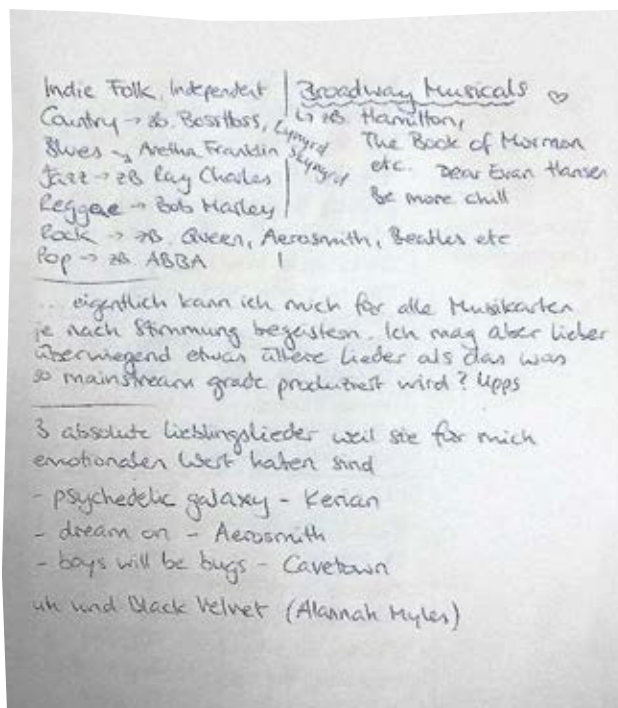 Indie Folk, Independent
Country → zB. BossHoss, Lynyrd Skynyrd
Blues → Aretha Franklin
Jazz → zB Ray Charles
Reggae → Bob Marley
Rock → zB. Queen, Aerosmith, Beatles etc
Pop → zB. ABBA
Broadway Musicals ♡
↳ zB. Hamilton,
The Book of Mormon
etc. Dear Evan Hansen
Be more chill
... eigentlich kann ich mich für alle Musikarten
je nach Stimmung begeistern. Ich mag aber lieber
überwiegend etwas ältere Lieder als das was
so mainstream grade produziert wird? Upps
3 absolute Lieblingslieder weil sie für mich
emotionalen Wert haben sind
- psychedelic galaxy - Kerian
- dream on - Aerosmith
- boys will be bugs - Cavetown
uh und Black Velvet (Alannah Myles)